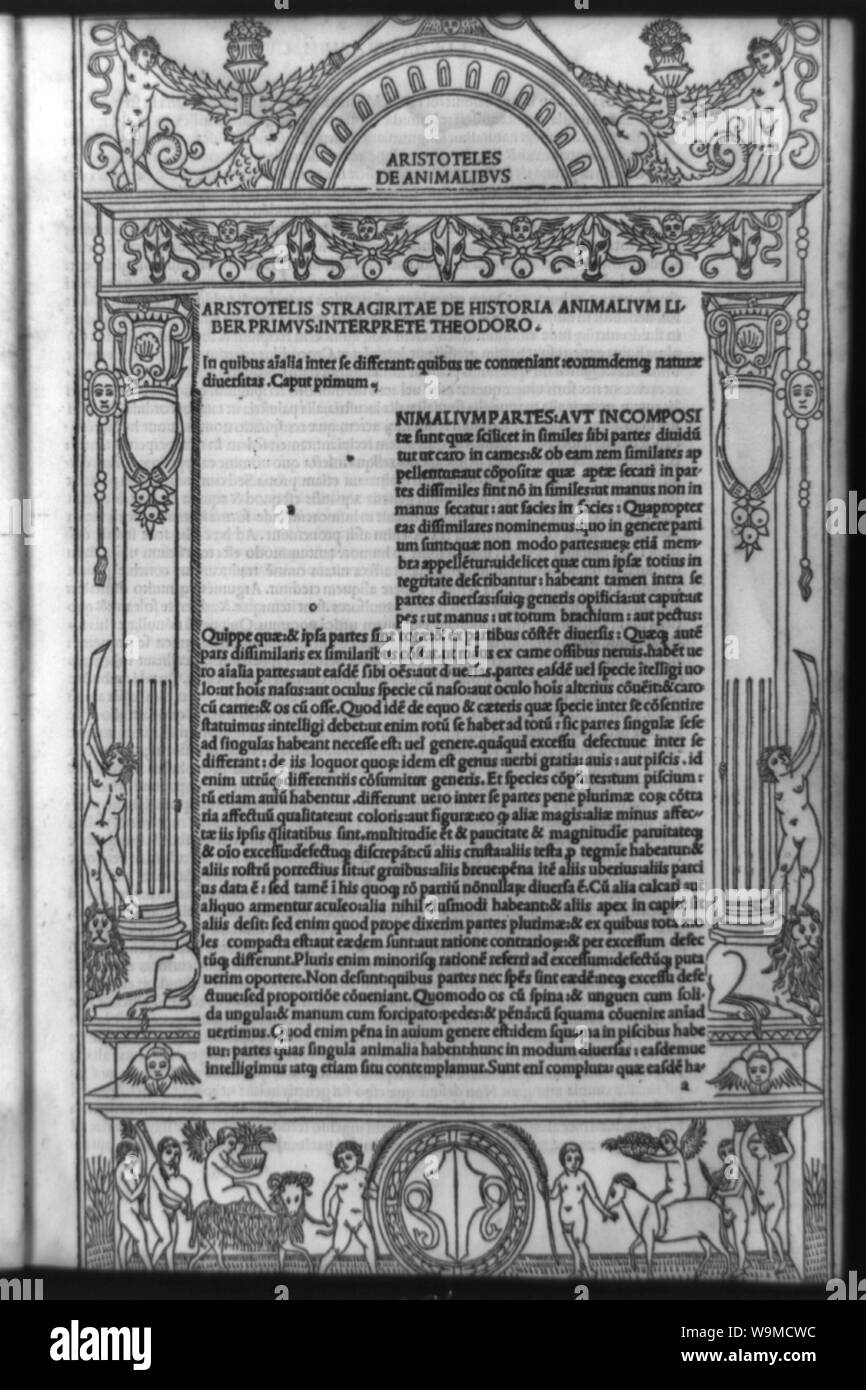 ARISTOTELES
DE ANIMALIBVS
ARISTOTELIS STRAGIRITAE DE HISTORIA ANIMALIVM LI-
BER PRIMVS:INTERPRETE THEODORO.
In quibus aīalia inter se differant: quibus ue conueniant:eorumdemq; naturæ
diuersitas.Caput primum.
NIMALIVM PARTES:AVT INCOMPOSI
tæ sunt quæ scilicet in similes sibi partes diuidū
tur ut caro in carnes:& ob eam rem similares ap
pellentur:aut cōpositæ quæ aptæ secari in par-
tes dissimiles sint nō in similes:ut manus non in
manus secatur: aut facies in facies: Quapropter
eas dissimilares nominemus:quo in genere parti
um sunt:quæ non modo partes:ueȝ etiā mem-
bra appellētur:uidelicet quæ cum ipsæ totius in
tegritate describantur: habeant tamen intra se
partes diuersas:suiq; generis opificia:ut caput:ut
pes:ut manus:ut totum brachium: aut pectus:
Quippe quæ:& ipsa partes sint & ex partibus cōstēt diuersis: Quæq; autē
pars dissimilaris ex similaribus cōstat:ut manus ex carne ossibus neruis.habēt ue
ro aīalia partes:aut easdē sibi oēs:aut diuersas.partes easdē uel specie ītelligi uo
lo:ut hoīs nasus:aut oculus specie cū naso:aut oculo hoīs alterius cōuēit:& caro
cū carne:& os cū osse.Quod idē de equo & cæteris quæ specie inter se cōsentire
statuimus:intelligi debet:ut enim totū se habet ad totū: sic partes singulæ sese
ad singulas habeant necesse est: uel genere.quāquā excessu defectuue inter se
differant: de iis loquor quoȝ idem est genus uerbi gratia: auis: aut piscis. id
enim utrūq; differentiis cōsumitur generis. Et species cōplures tum piscium:
tū etiam auiū habentur.differunt uero inter se partes pene plurimæ coȝ cōtra
ria affectuū qualitate:ut coloris:aut figuræ:eo q aliæ magis:aliæ minus affec-
tæ iis ipsis qlitatibus sunt.multitudīe et & paucitate & magnitudīe paruitateq;
& oīo excessu:defectuq; discrepāt:cū aliis crusta:aliis testa p tegmīe habeatur:&
aliis rostrū porrectius sit:ut gruibus:aliis breue:pēna itē aliis uberius:aliis parci
us data ē: sed tamē ī his quoq; rō partiū nōnullaȝ diuersa ē.Cū alia calcari aut
aliquo armentur aculeo:alia nihil eiusmodi habeant:& aliis apex in capite sit
aliis desit: sed enim quod prope dixerim partes plurimæ:& ex quibus tota
les compacta est:aut eædem sunt:aut ratione contrarioȝ:& per excessum defec
tūq; differunt.Pluris enim minorisq; rationē referri ad excessum:defectūq; puta
uerim oportere.Non desunt:quibus partes nec spēs sint eædē:neq; excessu defe
ctuue:sed proportiōe cōueniant.Quomodo os cū spina:& unguen cum soli-
da ungula:& manum cum forcipato:pedes:& pēnā:cū squama cōuenire aniad
uertimus.Quod enim pēna in auium genere est:idem squama in piscibus habe
tur: partes quas singula animalia habent:hunc in modum diuersas: easdemue
intelligimus:atq; etiam situ contemplamur.Sunt enī complura: quæ easdē ha-
a
alamy
Image ID: W9MCWC
www.alamy.com